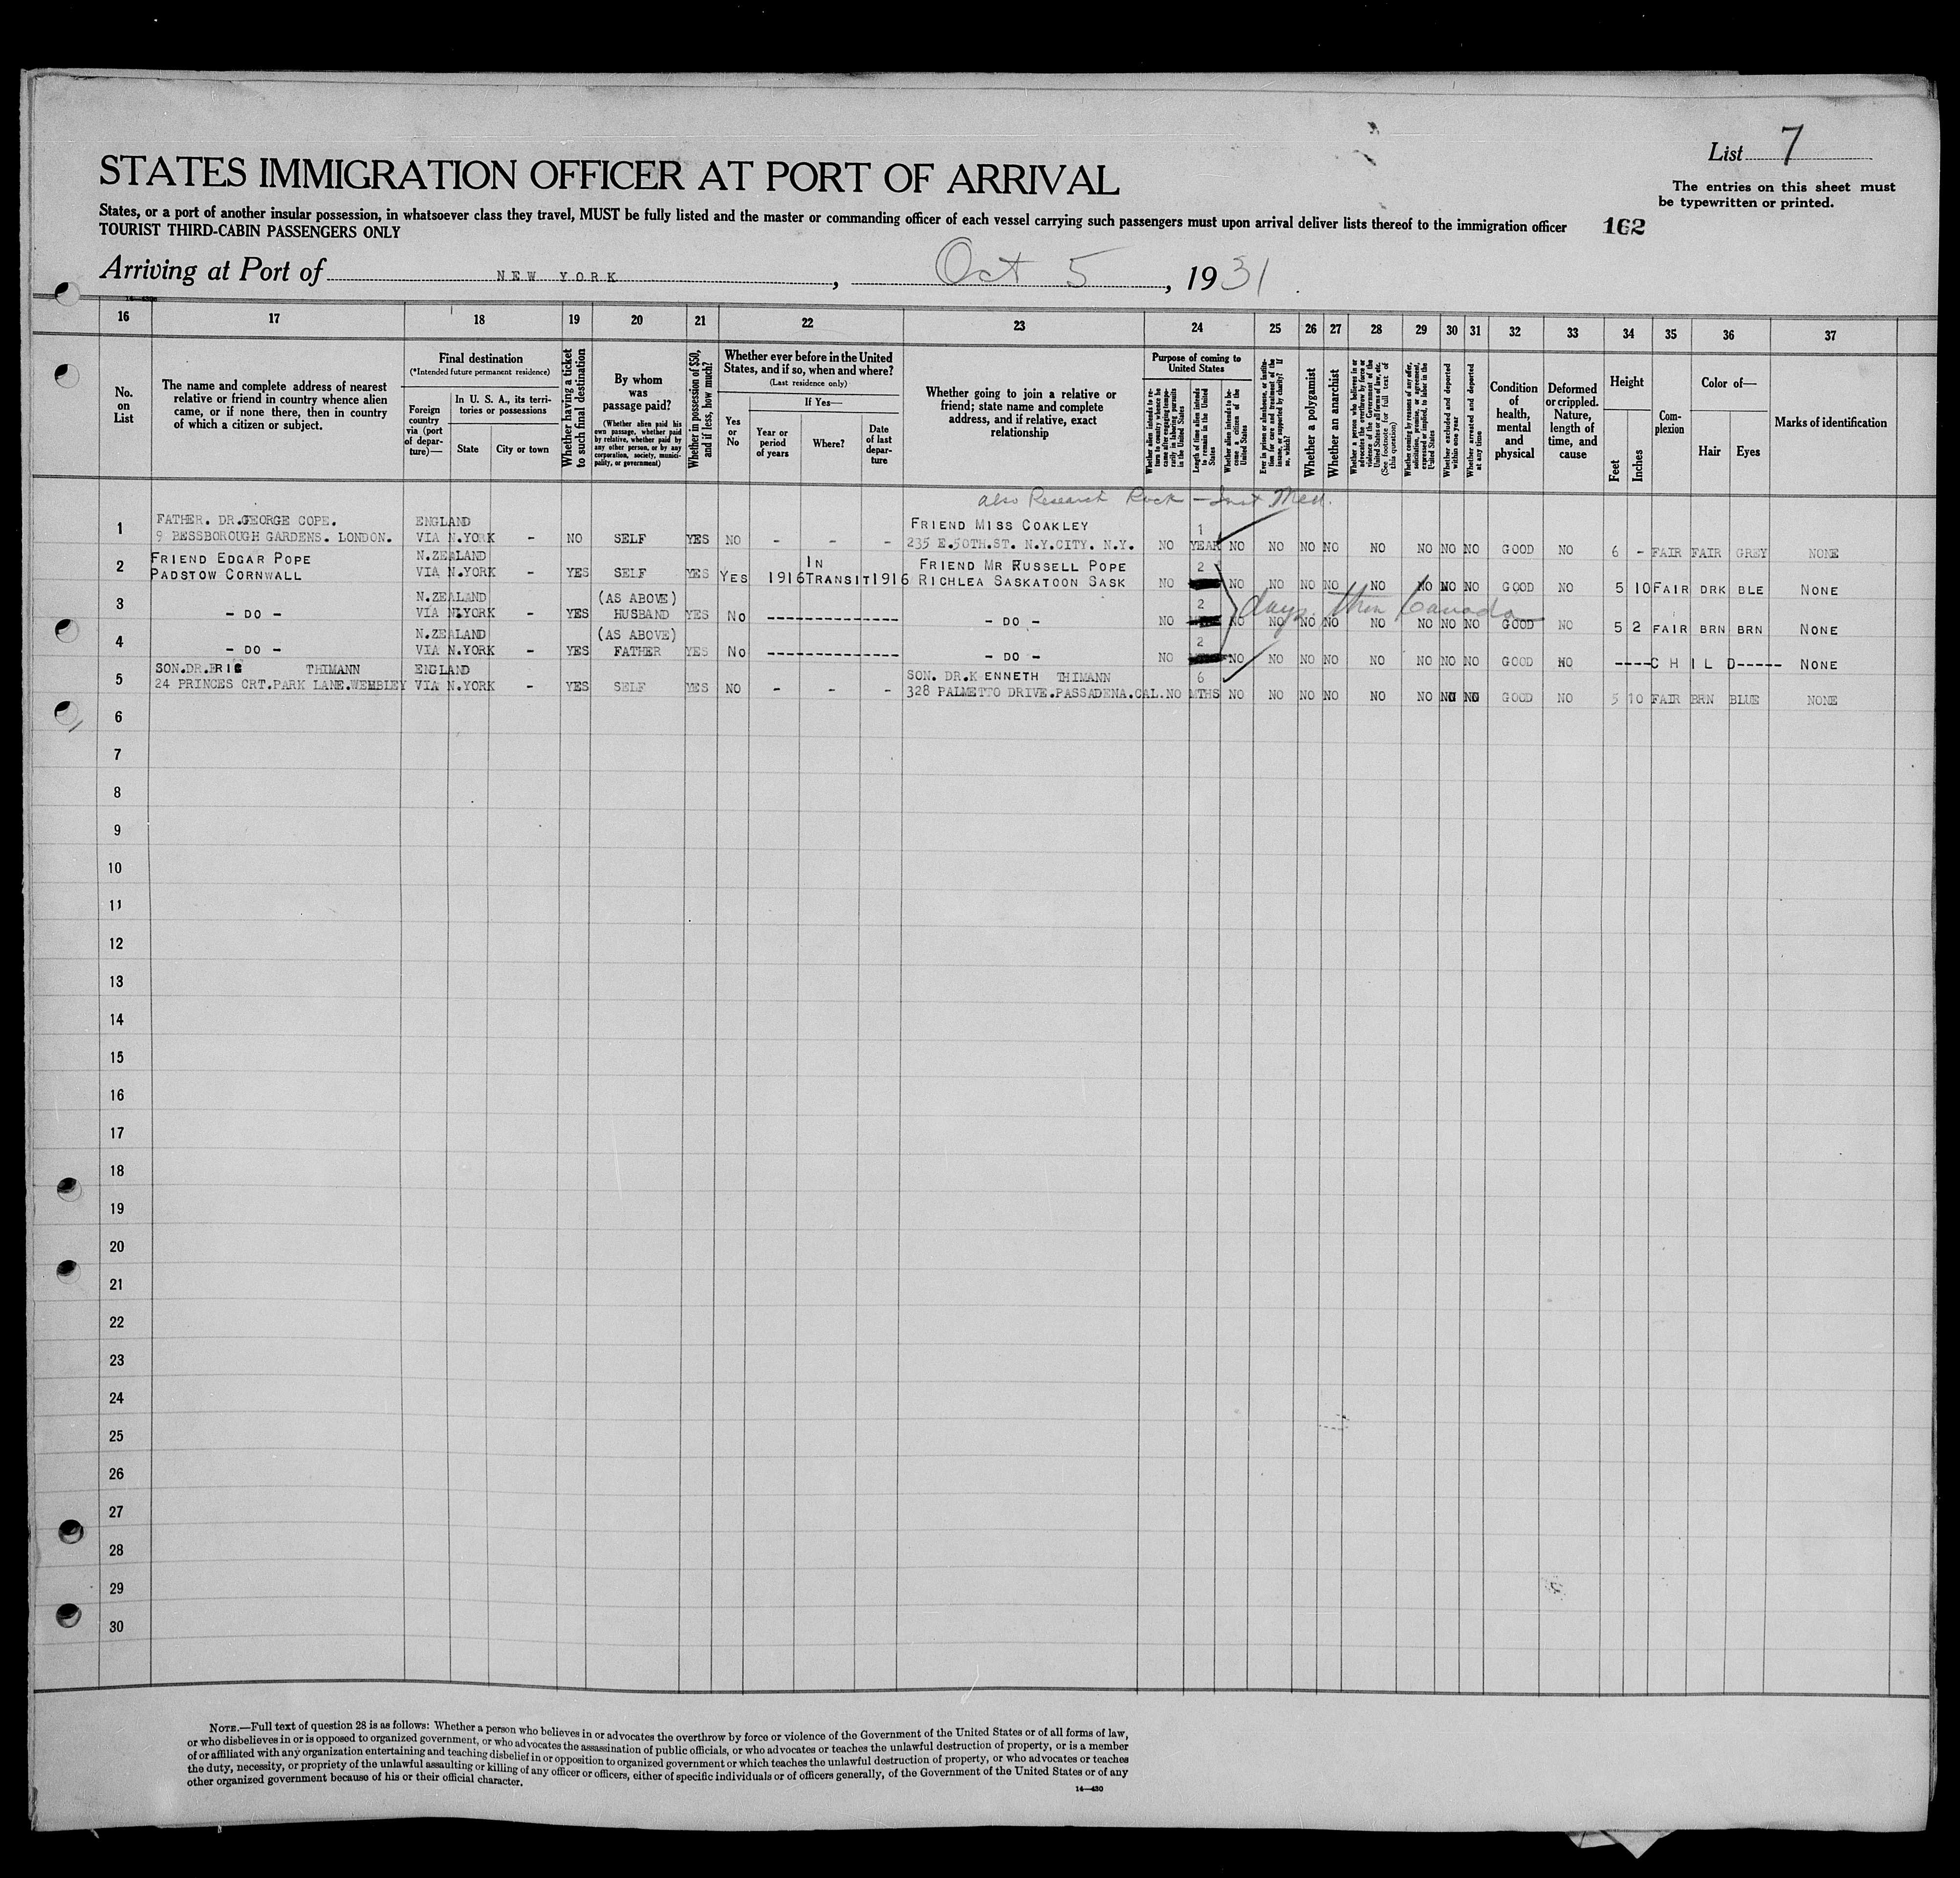 List 7
STATES IMMIGRATION OFFICER AT PORT OF ARRIVAL
The entries on this sheet must
be typewritten or printed.
States, or a port of another insular possession, in whatsoever class they travel, MUST be fully listed and the master or commanding officer of each vessel carrying such passengers must upon arrival deliver lists thereof to the immigration officer
162
TOURIST THIRD-CABIN PASSENGERS ONLY
Arriving at Port of NEW YORK, Oct 5, 1931
16 17 18 19 20 21 22 23 24 25 26 27 28 29 30 31 32 33 34 35 36 37
No.
on
List
The name and complete address of nearest
relative or friend in country whence alien
came, or if none there, then in country
of which a citizen or subject.
Final destination
(*Intended future permanent residence)
Foreign
country
via (port
of depar-
ture)—
In U. S. A., its terri-
tories or possessions
State
City or town
Whether having a ticket
to such final destination
By whom
was
passage paid?
(Whether alien paid his
own passage, whether paid
by relative, whether paid by
any other person, or by any
corporation, society, munici-
pality, or government)
Whether in possession of $50,
and if less, how much?
Whether ever before in the United
States, and if so, when and where?
(Last residence only)
Yes
or
No
If Yes—
Year or
period
of years
Where?
Date
of last
depar-
ture
Whether going to join a relative or
friend; state name and complete
address, and if relative, exact
relationship
Purpose of coming to
United States
Whether alien intends to re-
turn to country whence he
came after engaging tempo-
rarily in laboring pursuits
in the United States
Length of time alien intends
to remain in the United
States
Whether alien intends to be-
come a citizen of the
United States
Ever in prison or almshouse, or institu-
tion for care and treatment of the
insane, or supported by charity? If
so, which?
Whether a polygamist
Whether an anarchist
Whether a person who believes in or
advocates the overthrow by force or
violence of the Government of the
United States or all forms of law, etc.
(See footnote for full text of
this question)
Whether coming by reasons of any offer,
solicitation, promise, or agreement,
expressed or implied, to labor in the
United States
Whether excluded and deported
within one year
Whether arrested and deported
at any time
Condition
of
health,
mental
and
physical
Deformed
or crippled.
Nature,
length of
time, and
cause
Height
Feet
Inches
Com-
plexion
Color of—
Hair
Eyes
Marks of identification
also Research Rock — Inst Med.
1 FATHER. DR.GEORGE COPE. ENGLAND FRIEND MISS COAKLEY 1
9 BESSBOROUGH GARDENS. LONDON. VIA N.YORK - NO SELF YES NO - - - 235 E.50TH.ST. N.Y.CITY. N.Y. NO YEAR NO NO NO NO NO NO NO NO GOOD NO 6 - FAIR FAIR GREY NONE
2 FRIEND EDGAR POPE N.ZEALAND IN FRIEND MR RUSSELL POPE 2
PADSTOW CORNWALL VIA N.YORK - YES SELF YES YES 1916 TRANSIT 1916 RICHLEA SASKATOON SASK NO NO NO NO NO NO NO NO NO GOOD NO 5 10 FAIR DRK BLE NONE
days. then Canada
3 N.ZEALAND (AS ABOVE) 2
- DO - VIA N.YORK - YES HUSBAND YES NO ------------- - DO - NO NO NO NO NO NO NO NO NO GOOD NO 5 2 FAIR BRN BRN NONE
4 N.ZEALAND (AS ABOVE) 2
- DO - VIA N.YORK - YES FATHER YES NO ------------- - DO - NO NO NO NO NO NO NO NO NO GOOD NO ----C H I L D----- NONE
5 SON.DR.ERIC THIMANN ENGLAND SON. DR.KENNETH THIMANN 6
24 PRINCES CRT.PARK LANE.WEMBLEY VIA N.YORK - YES SELF YES NO - - - 328 PALMETTO DRIVE.PASSADENA.CAL. NO MTHS NO NO NO NO NO NO NO NO GOOD NO 5 10 FAIR BRN BLUE NONE
6
7
8
9
10
11
12
13
14
15
16
17
18
19
20
21
22
23
24
25
26
27
28
29
30
NOTE.—Full text of question 28 is as follows: Whether a person who believes in or advocates the overthrow by force or violence of the Government of the United States or of all forms of law,
or who disbelieves in or is opposed to organized government, or who advocates the assassination of public officials, or who advocates or teaches the unlawful destruction of property, or is a member
of or affiliated with any organization entertaining and teaching disbelief in or opposition to organized government or which teaches the unlawful destruction of property, or who advocates or teaches
the duty, necessity, or propriety of the unlawful assaulting or killing of any officer or officers, either of specific individuals or of officers generally, of the Government of the United States or of any
other organized government because of his or their official character.
14—430